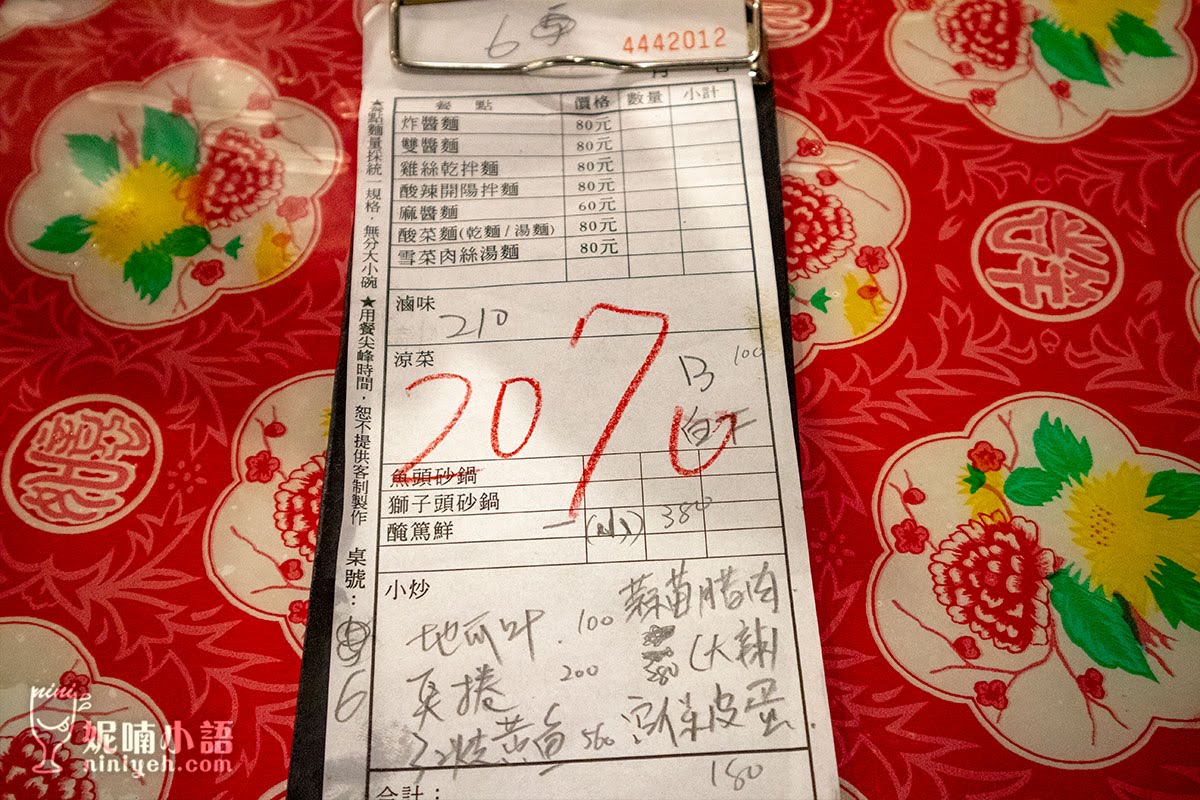 6 
4442012
餐點 價格 數量 小計
炸醬麵 80元
雙醬麵 80元
雞絲乾拌麵 80元
酸辣開陽拌麵 80元
麻醬麵 60元
酸菜麵(乾麵/湯麵) 80元
雪菜肉絲湯麵 80元
滷味
210
涼菜
2070
B 100
白干
魚頭砂鍋
獅子頭砂鍋
醃篤鮮 一 (小) 380
小炒
地瓜叶 100
蒜苗腊肉
(大辣)
380
200
紅燒黃魚 560
皮蛋
180
合計：
★餐點麵量採統一規格，無分大小碗 ★用餐尖峰時間，恕不提供客制製作 桌號：
6
nini
妮喃小語
niniyeh.com